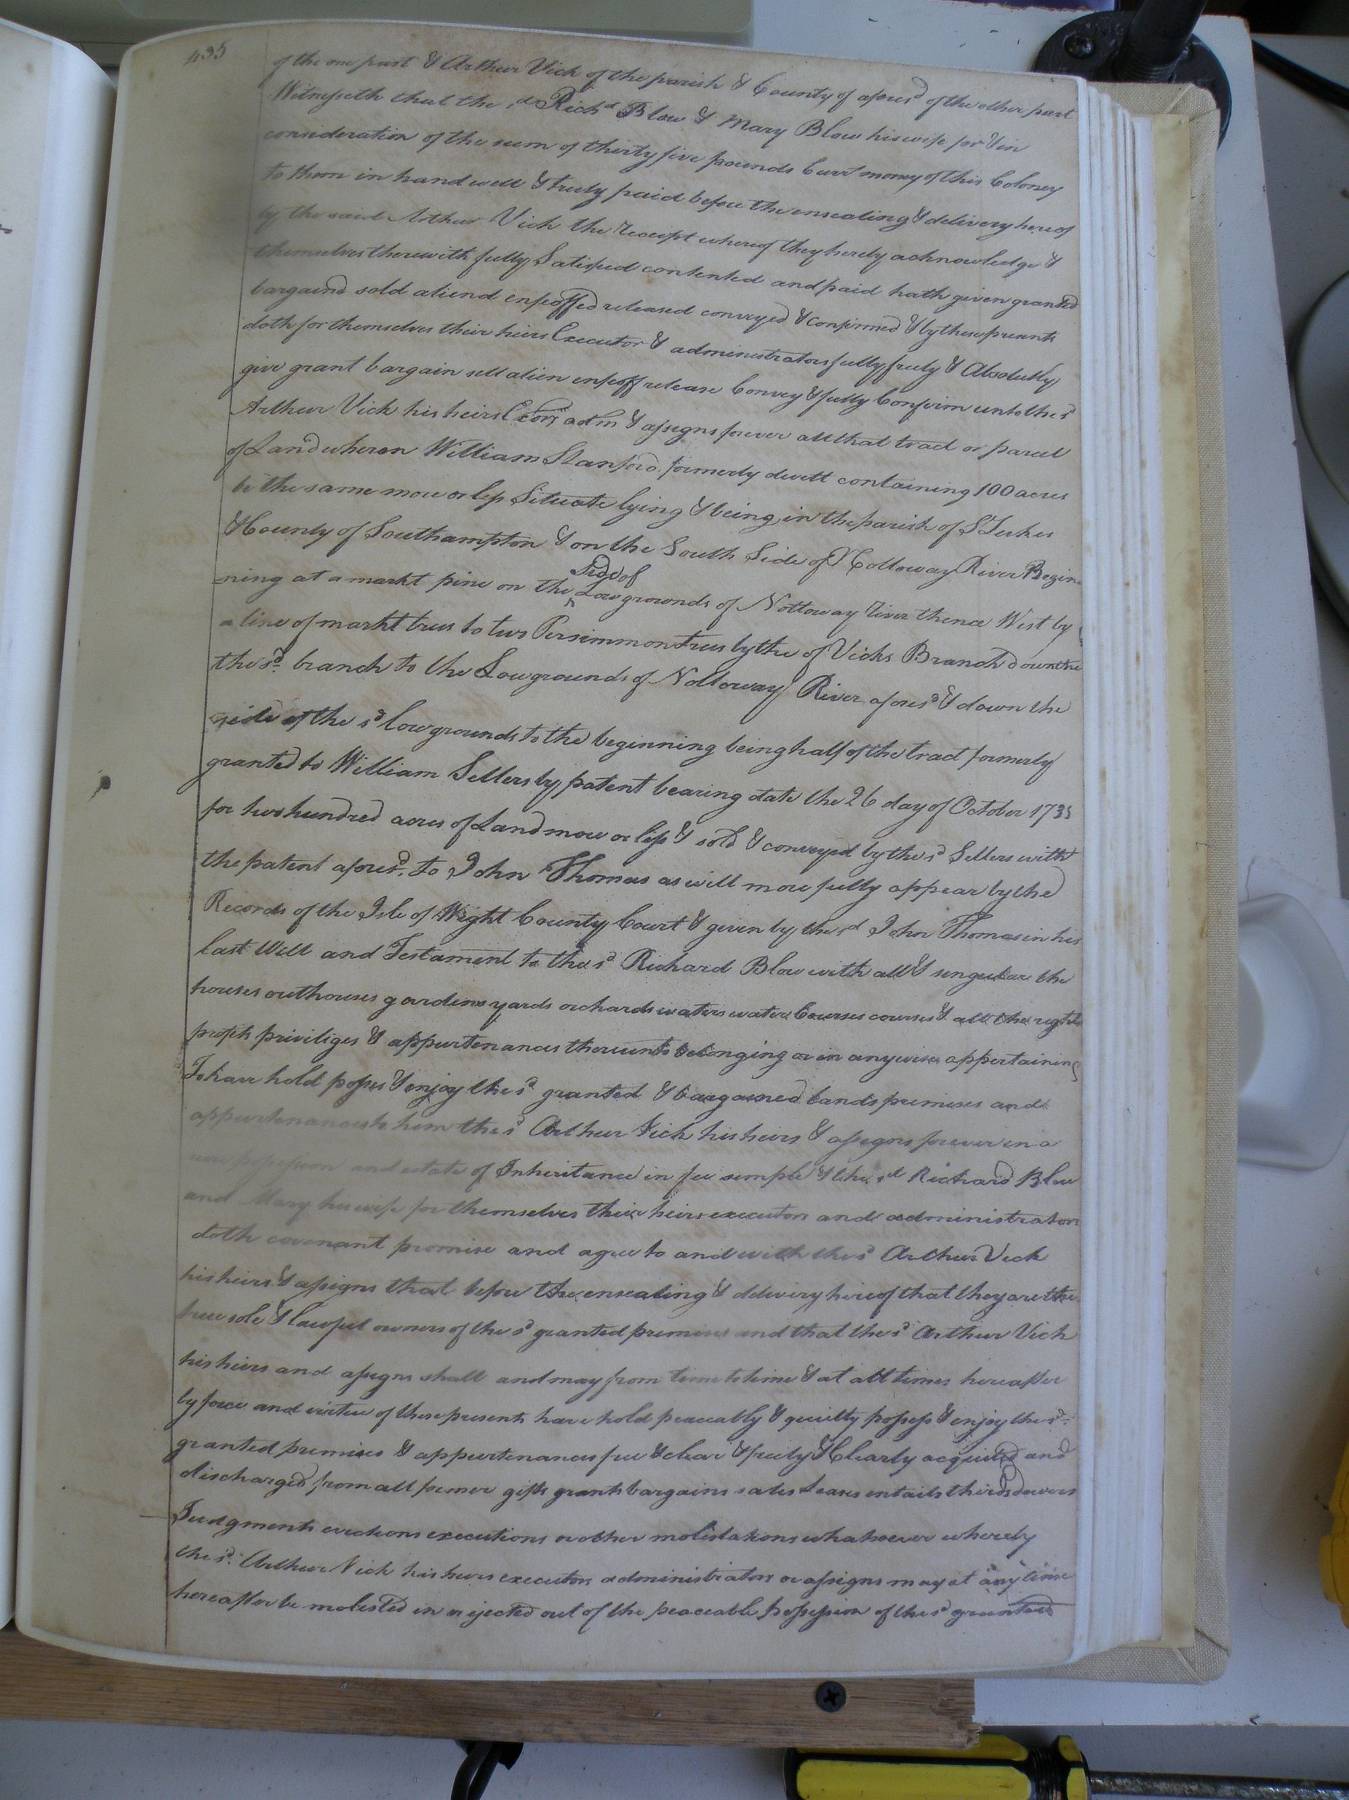 435
of the one part & Arthur Vick of the parish & County of afores.d of the other part
Witnesseth that the s.d Rich.d Blow & Mary Blow his wife for & in
consideration of the sum of thirty five pounds Curr.t money of this Coloney
to them in hand well & truly paid before the ensealing & delivery hereof
by the said Arthur Vick the receipt whereof they hereby acknowledge &
themselves therewith fully Satisfied contented and paid hath given granted
bargaind sold aliend enfeoffed released conveyed & confirmed & by these presents
doth for themselves their heirs Executors & administrators fully freely & Absolutely
give grant bargain sell alien enfeoff release Convey & fully Confirm unto the s.d
Arthur Vick his heirs Exors adm & assigns forever all that tract or parcel
of Land wheron William Stanford formerly dwelt containing 100 acres
be the same more or less Situate lying & being in the parish of S.t Lukes
& County of Southampton & on the South Side of Nottoway River Begin
ning at a markt pine on the Side of Low grounds of Nottoway River thence West by
a line of markt trees to two Persimmon trees by the of Vicks Branch down the
the s.d branch to the Lowgrounds of Nottoway River afores.d & down the
side of the s.d lowgrounds to the beginning being half of the tract formerly
granted to William Sellers by patent bearing date the 26 day of October 1735
for two hundred acres of Land more or less & sold & conveyed by the s.d Sellers with
the patent afores.d to John Thomas as will more fully appear by the
Records of the Isle of Wight County Court & given by the s.d John Thomas in his
last Will and Testament to the s.d Richard Blow with all & singular the
houses outhouses gardens yards orchards waters water Courses courses & all the rights
profits priviliges & appurtenances thereunto belonging or in anywise appertaining
To have hold posses & enjoy the s.d granted & bargained lands premises and
appurtenances to him the s.d Arthur Vick his heirs & assigns forever in a
possession and estate of Inheritance in fee simple & the s.d Richard Blow
and Mary his wife for themselves their heirs executors and administrators
doth covenant promise and agree to and with the s.d Arthur Vick
his heirs & assigns that before the ensealing & delivery hereof that they are the
true sole & lawful owners of the s.d granted premises and that the s.d Arthur Vick
his heirs and assigns shall and may from time to time & at all times hereafter
by force and virtue of these presents have hold peaceably & quietly possess & enjoy the s.d
granted premises & appurtenances free & clear & freely & Clearly acquited and
discharged from all former gifts grants bargains sales Leases entails thirds dowers
Judgments evictions executions or other molestations whatsoever whereby
the s.d Arthur Vick his heirs executors administrators or assigns may at any time
hereafter be molested in or ejected out of the peaceable possession of the s.d granted